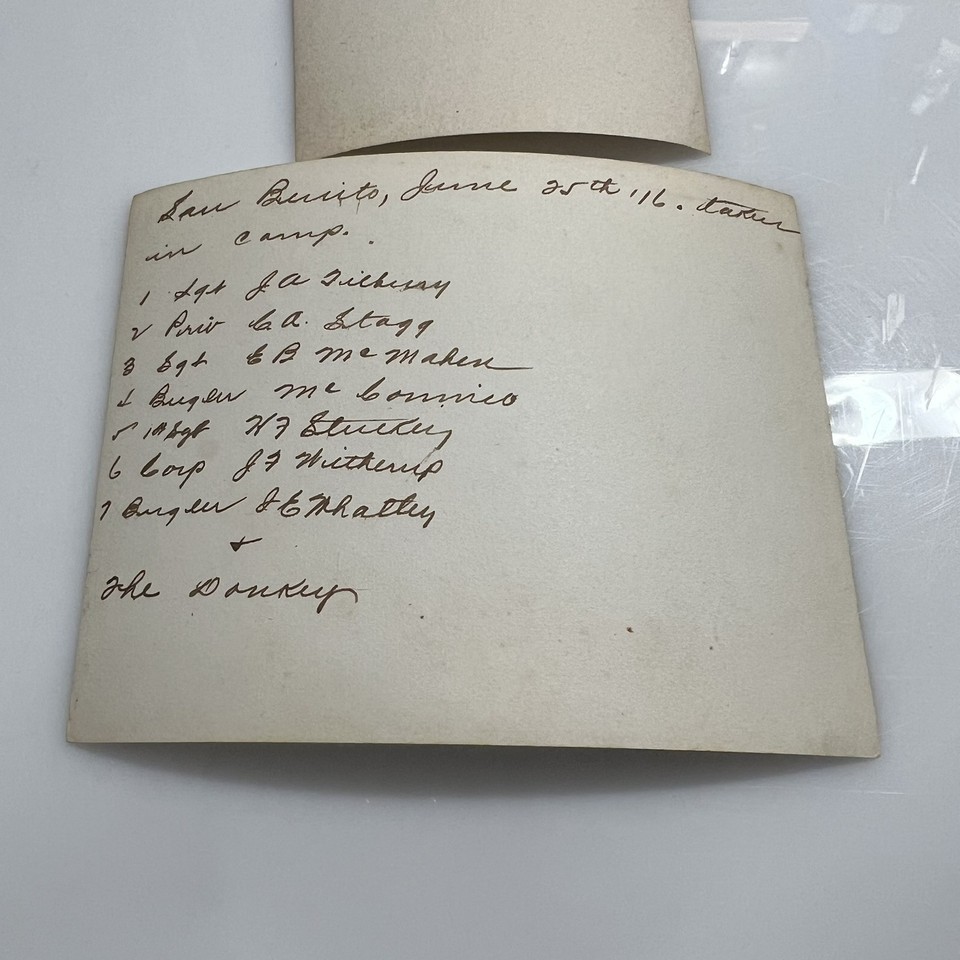 San Benito, June 25th '16. taken
in camp.
1 Sgt J A
2 Priv C A. Stagg
3 Sgt E B McMahen
4 Bugler McConnico
5 1st Sgt W F Stuckey
6 Corp J F Witherup
7 Bugler J E Whatley
+
The Donkey